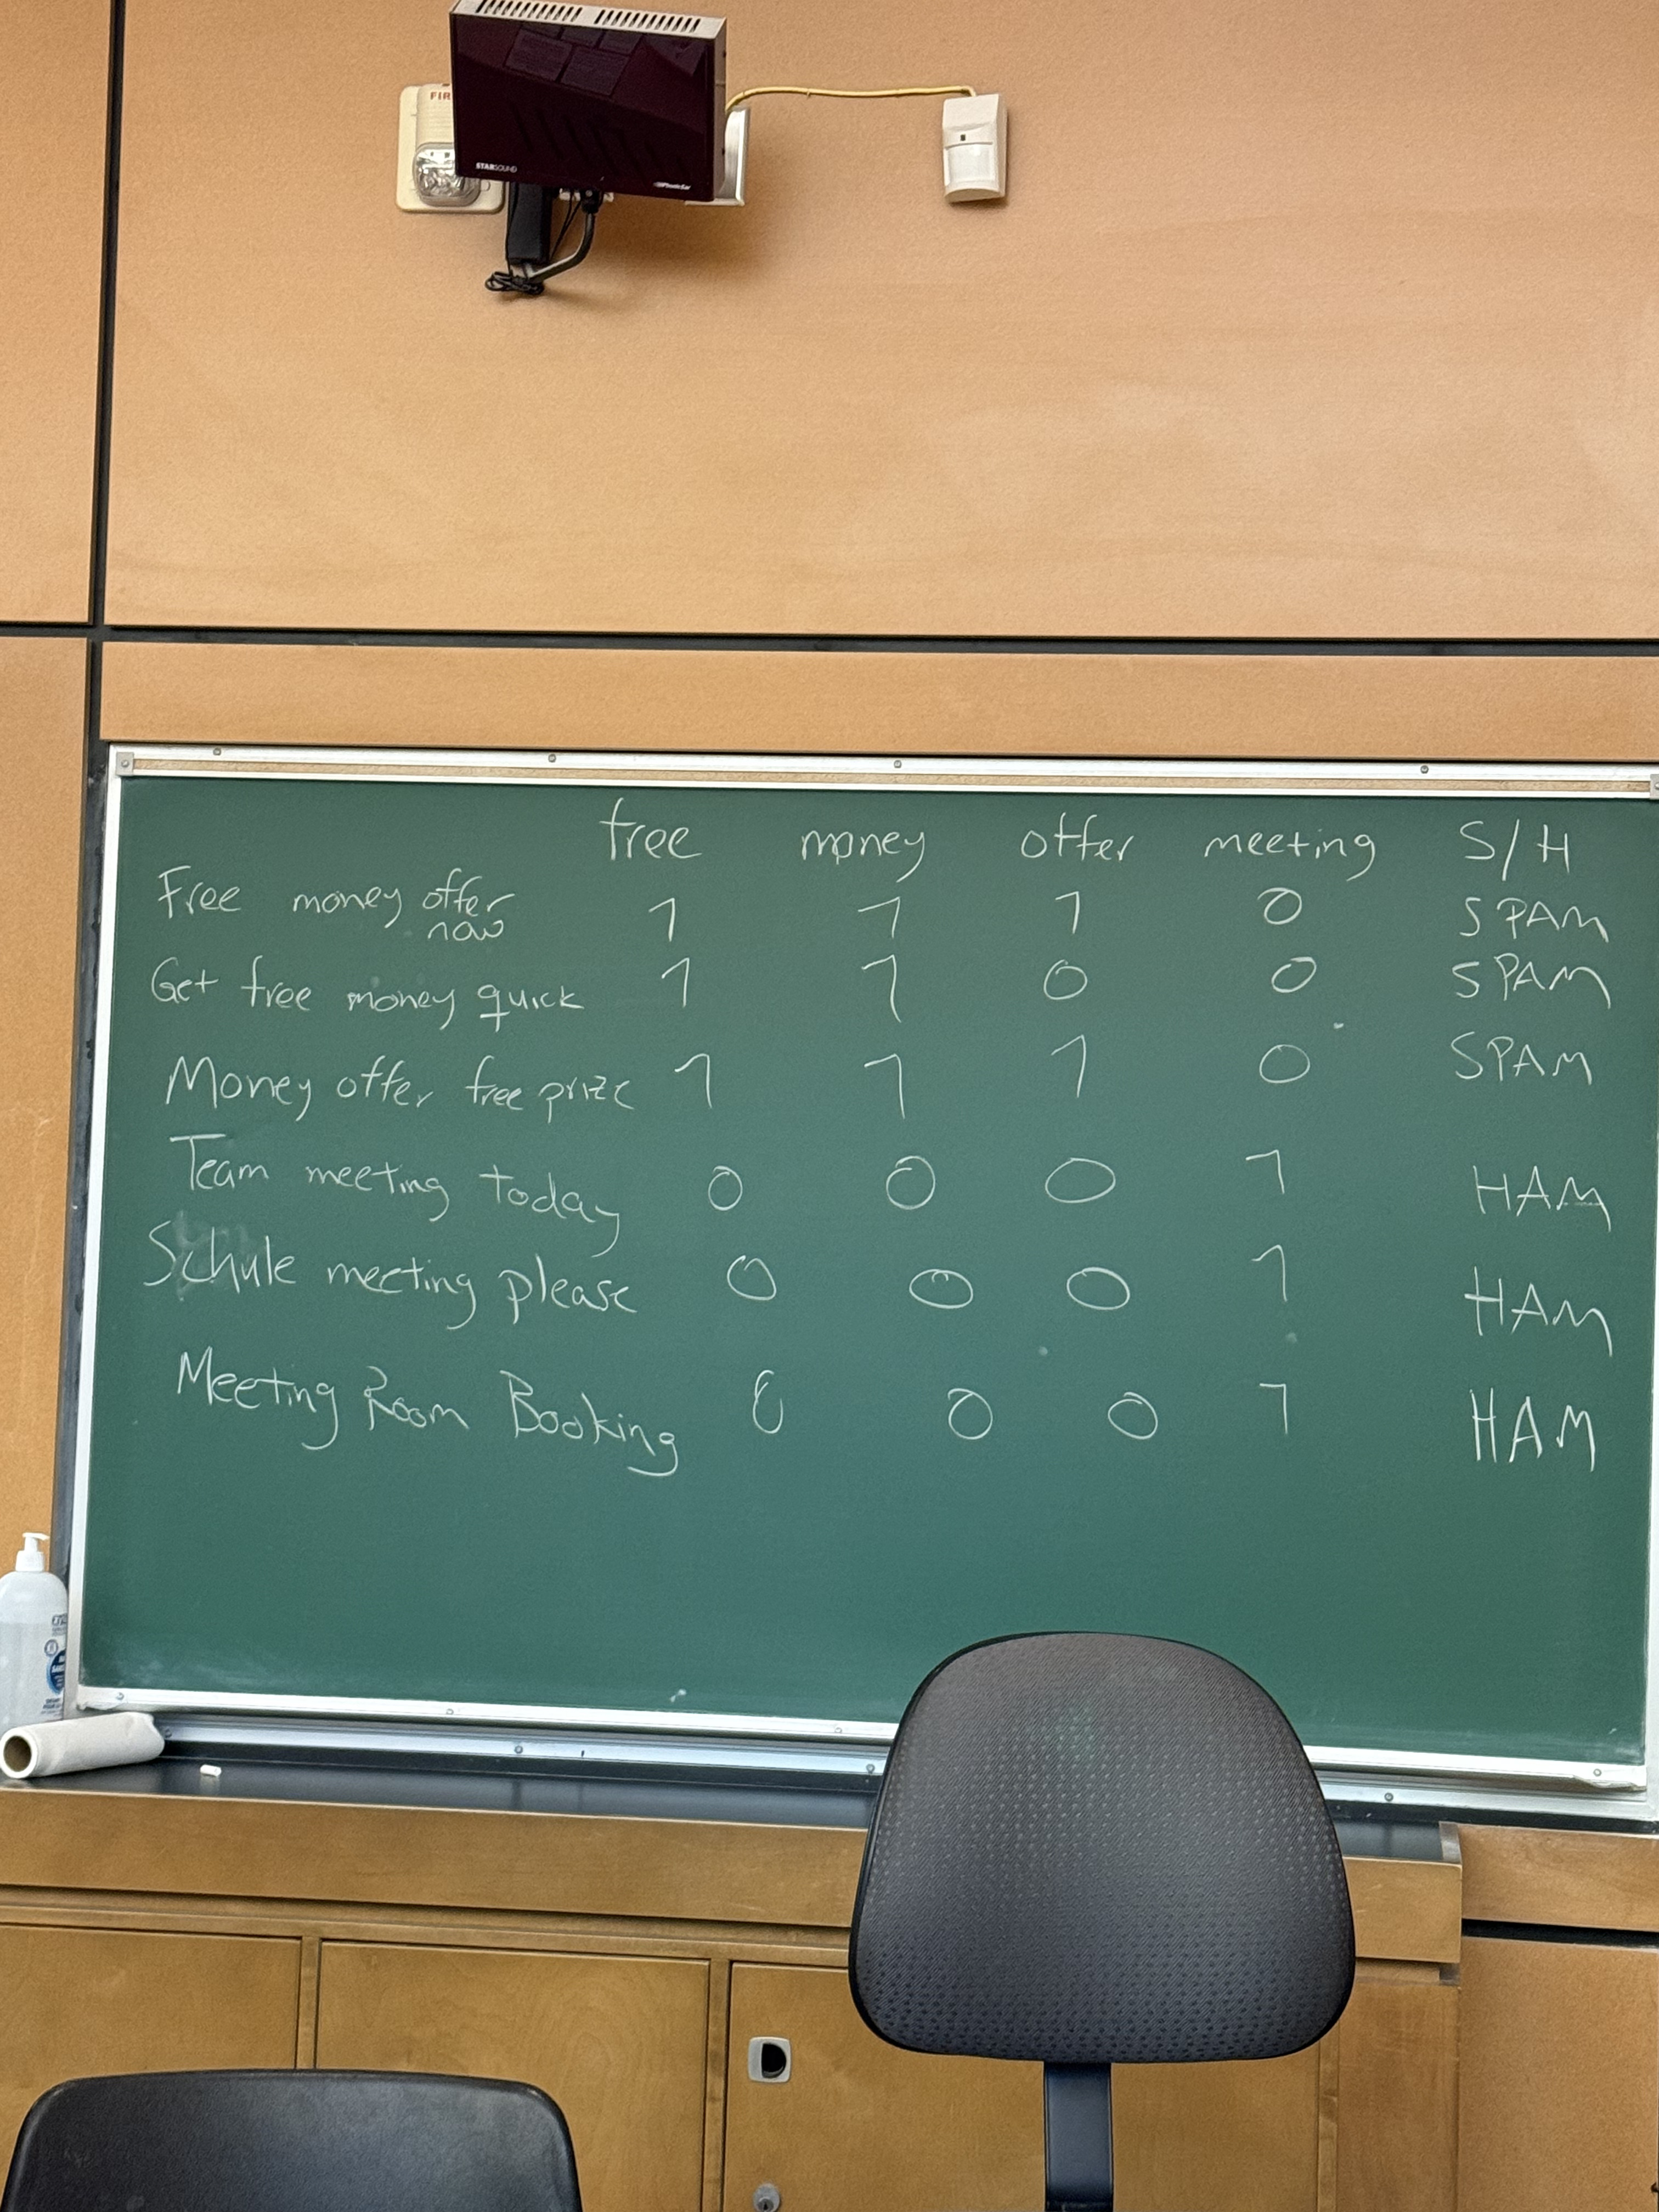 FIR
STARSOUND
PhonicEar
free money offer meeting S/H
Free money offer now 1 1 1 0 SPAM
Get free money quick 1 1 0 0 SPAM
Money offer free prize 1 1 1 0 SPAM
Team meeting today 0 0 0 1 HAM
Schule meeting please 0 0 0 1 HAM
Meeting Room Booking 0 0 0 1 HAM